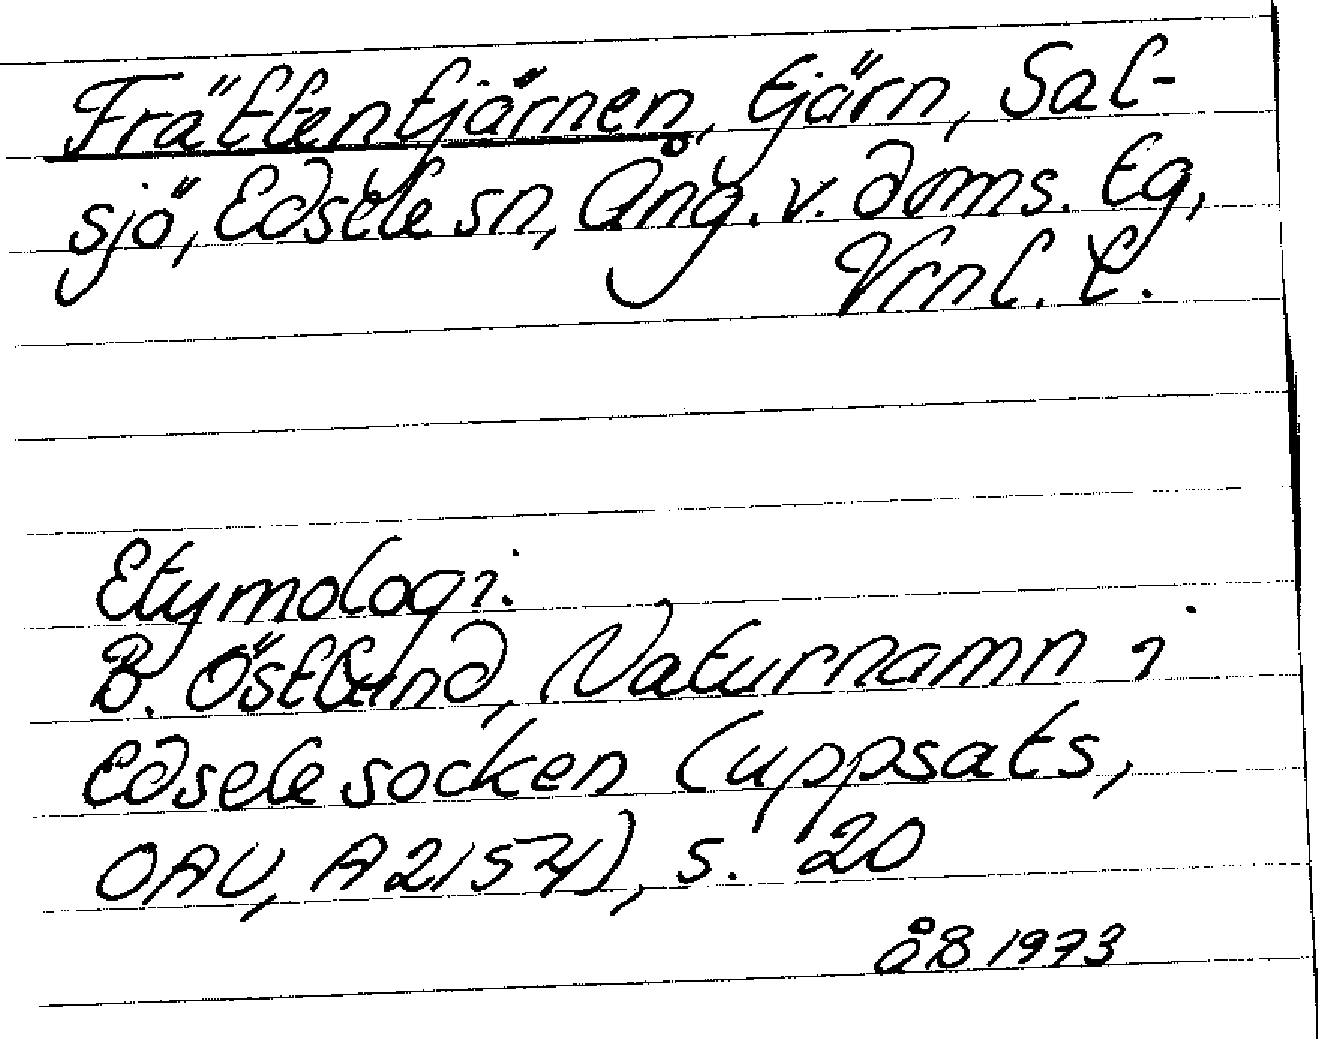 Frättentjärnen, tjärn, Sal-
sjö, Edsele sn, Ång. v. doms. tg,
Vrnl. l.
Etymologi.
B. Östlund, Naturnamn i
Edsele socken (uppsats,
OAU, A2154), s. 20
åB 1973